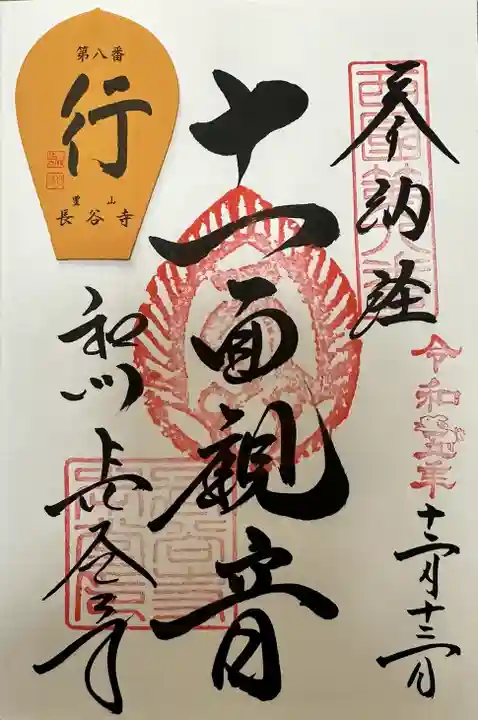 奉納経
西国第八番
令和五年
十二月十三日
十一面観音
和州
長谷寺
第八番
行
豊山
長谷寺